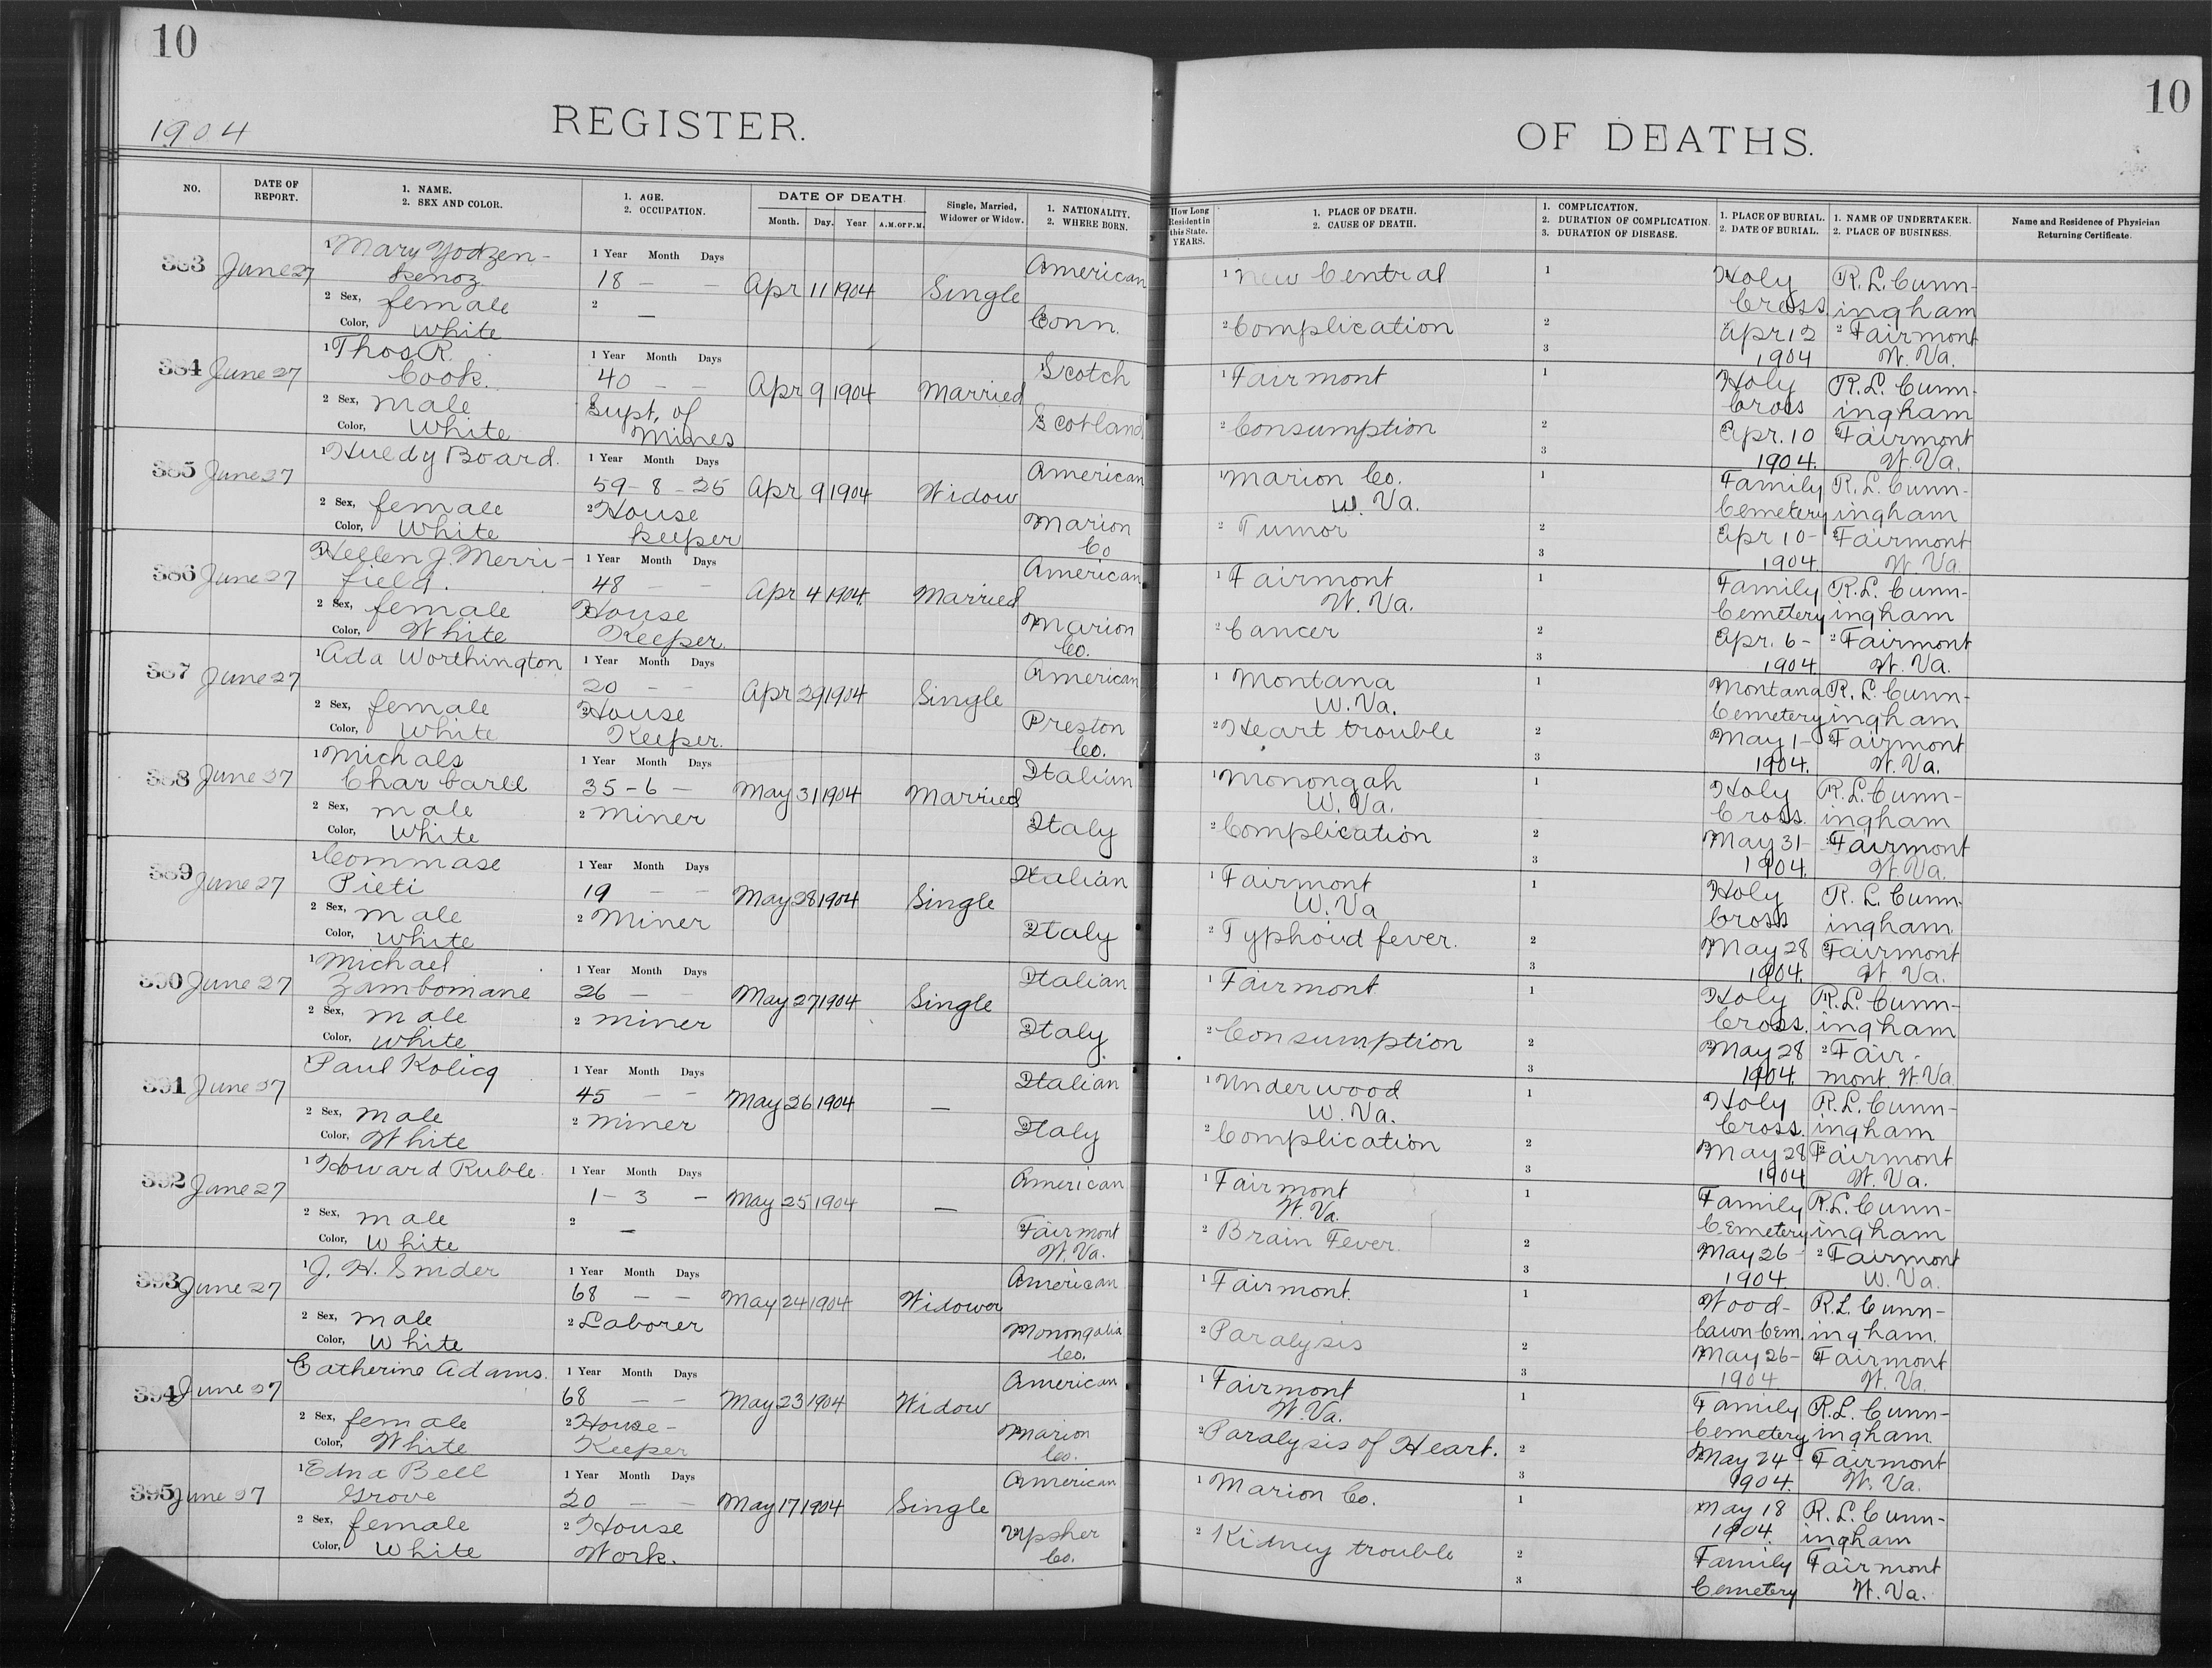 10
10
1904
REGISTER.
OF DEATHS.
NO.
DATE OF REPORT.
1. NAME.
2. SEX AND COLOR.
1. AGE.
2. OCCUPATION.
DATE OF DEATH.
Month. Day. Year A.M. or P.M.
Single, Married,
Widower or Widow.
1. NATIONALITY.
2. WHERE BORN.
How Long
Resident in
this State.
YEARS.
1. PLACE OF DEATH.
2. CAUSE OF DEATH.
1. COMPLICATION.
2. DURATION OF COMPLICATION.
3. DURATION OF DISEASE.
1. PLACE OF BURIAL.
2. DATE OF BURIAL.
1. NAME OF UNDERTAKER.
2. PLACE OF BUSINESS.
Name and Residence of Physician
Returning Certificate.
383 June 27
1 Mary
2 Sex, female
Color, White
1 Year Month Days
18 - -
2 -
Apr 11 1904 Single
American
Conn.
1 New Central
2 Complication
1
2
3
Holy
Cross
Apr 12
1904
R. L. Cunn-
ingham
2 Fairmont
W. Va.
384 June 27
1 Thos R.
Cook.
2 Sex, male
Color, White
1 Year Month Days
40 - -
Supt. of
Mines
Apr 9 1904 Married
Scotch
Scotland
1 Fairmont
2 Consumption
1
2
3
Holy
Cross
Apr. 10
1904.
R. L. Cunn-
ingham
2 Fairmont
W. Va.
385 June 27
1 Huldy Board.
2 Sex, female
Color, White
1 Year Month Days
59 - 8 - 25
2 House
keeper
Apr 9 1904 Widow
American
Marion
Co
1 Marion Co.
W. Va.
2 Tumor
1
2
3
Family
Cemetery
Apr 10 -
1904
R. L. Cunn-
ingham
2 Fairmont
W. Va.
386 June 27
1 Hellen J. Merri-
field.
2 Sex, female
Color, White
1 Year Month Days
48 - -
House
Keeper.
Apr 4 1904. Married
American
Marion
Co.
1 Fairmont
W. Va.
2 Cancer
1
2
3
Family
Cemetery
Apr. 6 -
1904.
R. L. Cunn-
ingham
2 Fairmont
W. Va.
387 June 27
1 Ada Worthington
2 Sex, female
Color, White
1 Year Month Days
20 - -
2 House
Keeper.
Apr 29 1904 Single
American
Preston
Co.
1 Montana
W. Va.
2 Heart trouble
1
2
3
Montana
Cemetery
May 1 -
1904.
R. L. Cunn-
ingham
2 Fairmont
W. Va.
388 June 27
1 Michals
Charbarll
2 Sex, male
Color, White
1 Year Month Days
35 - 6 -
2 Miner
May 31 1904 Married
Italian
2 Italy
1 Monongah
W. Va.
2 Complication
1
2
3
Holy
Cross.
May 31 -
1904.
R. L. Cunn-
ingham
2 Fairmont
W. Va.
389 June 27
1 Commase
Pieti
2 Sex, male
Color, White
1 Year Month Days
19 - -
2 Miner
May 28 1904 Single
Italian
2 Italy
1 Fairmont
W. Va
2 Typhoid fever.
1
2
3
Holy
Cross
May 28
1904.
R. L. Cunn-
ingham
2 Fairmont
W. Va.
390 June 27
1 Michael
Zambomane
2 Sex, male
Color, White
1 Year Month Days
26 - -
2 miner
May 27 1904 Single
1 Italian
2 Italy
1 Fairmont
2 Consumption
1
2
3
Holy
Cross.
May 28
1904.
R. L. Cunn-
ingham
2 Fair-
mont. W. Va
391 June 27
1 Paul Kolicq
2 Sex, male
Color, White
1 Year Month Days
45 - -
2 miner
May 26 1904 -
1 Italian
2 Italy
1 Underwood
W. Va.
2 Complication
1
2
3
Holy
Cross.
May 28
1904
R. L. Cunn-
ingham
2 Fairmont
W. Va.
392 June 27
1 Howard Ruble.
2 Sex, male
Color, White
1 Year Month Days
1 - 3 -
2 -
May 25 1904 -
American
2 Fairmont
W. Va.
1 Fairmont
W. Va.
2 Brain Fever.
1
2
3
Family
Cemetery
May 26 -
1904
R. L. Cunn-
ingham
2 Fairmont
W. Va.
393 June 27
1 J. H. Snider
2 Sex, male
Color, White
1 Year Month Days
68 - -
2 Laborer
May 24 1904 Widower
American
Monongalia
Co.
1 Fairmont.
2 Paralysis
1
2
3
Wood-
lawn Cem.
May 26 -
1904
R. L. Cunn-
ingham.
2 Fairmont
W. Va.
394 June 27
Catherine Adams.
2 Sex, female
Color, White
1 Year Month Days
68 - -
2 House-
Keeper
May 23 1904 Widow
American
Marion
Co.
1 Fairmont
W. Va.
2 Paralysis of Heart.
1
2
3
Family
Cemetery
May 24 -
1904.
R. L. Cunn-
ingham.
Fairmont
W. Va.
395 June 27
1 Edna Bell
Grove
2 Sex, female
Color, White
1 Year Month Days
20 - -
2 House
Work.
May 17 1904 Single
American
Upsher
Co.
1 Marion Co.
2 Kidney trouble
1
2
3
May 18
1904.
Family
Cemetery
R. L. Cunn-
ingham
Fairmont
W. Va.